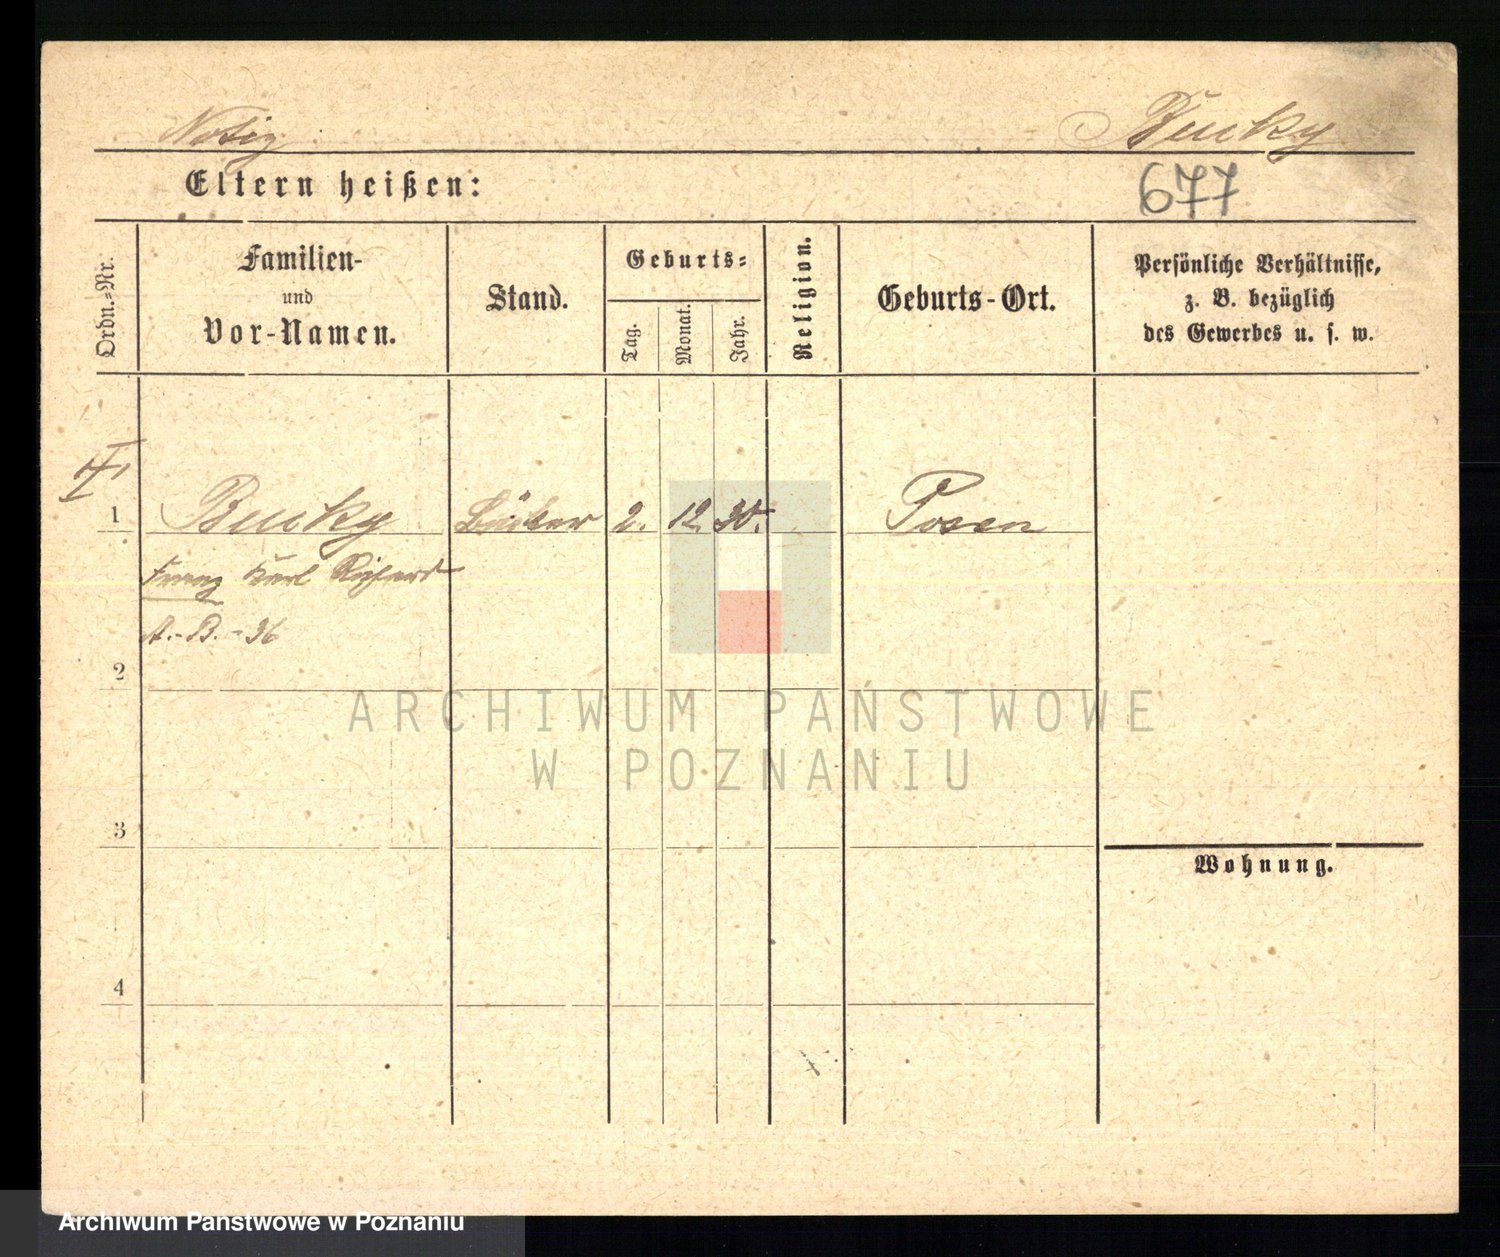 Notiz
Bucky
Eltern heißen:
677
Ordn.-Nr.
Familien-
und
Vor-Namen.
Stand.
Geburts-
Tag.
Monat.
Jahr.
Religion.
Geburts-Ort.
Persönliche Verhältnisse,
z. B. bezüglich
des Gewerbes u. s. w.
1 Bucky Bäcker 2. 12. 30. Posen
Franz Karl Richard
A.-B.-36
2
ARCHIWUM PAŃSTWOWE
W POZNANIU
3
Wohnung.
4
Archiwum Państwowe w Poznaniu